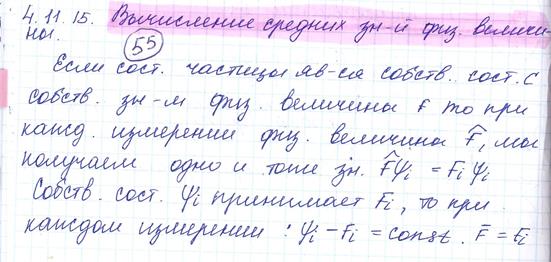 4.11.15. Вычисление средних зн-й физ. величи-
ны.
55
Если сост. частицы яв-ся собств. сост. с
собств. зн-м физ. величины F то при
кажд. измерении физ. величины F̂, мы
получаем одно и тоже зн. F̂ψi = Fiψi
Собств. сост. ψi принимает Fi, то при
каждом измерении : ψi – Fi = const. F̄ = Fi